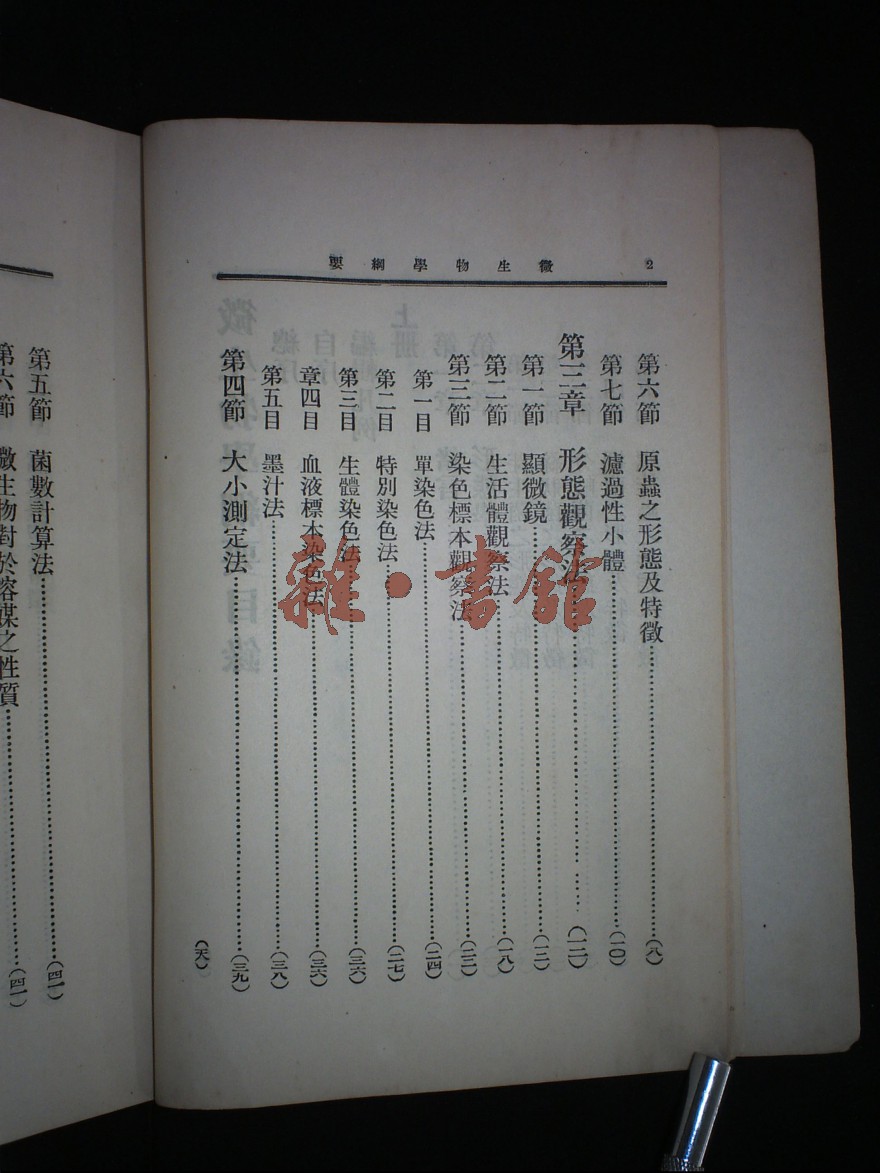 2 微生物學綱要
第六節 原蟲之形態及特徵……(八)
第七節 濾過性小體……(一〇)
第三章 形態觀察法……(一二)
第一節 顯微鏡……(一三)
第二節 生活體觀察法……(一八)
第三節 染色標本觀察法……(二三)
第一目 單染色法……(二四)
第二目 特別染色法……(二七)
第三目 生體染色法……(三六)
章四目 血液標本染色法……(三六)
第五目 墨汁法……(三八)
第四節 大小測定法……(三九)
(天八)
第五節 菌數計算法……(四一)
第六節 微生物對於溶媒之性質……(四一)
雜·書館